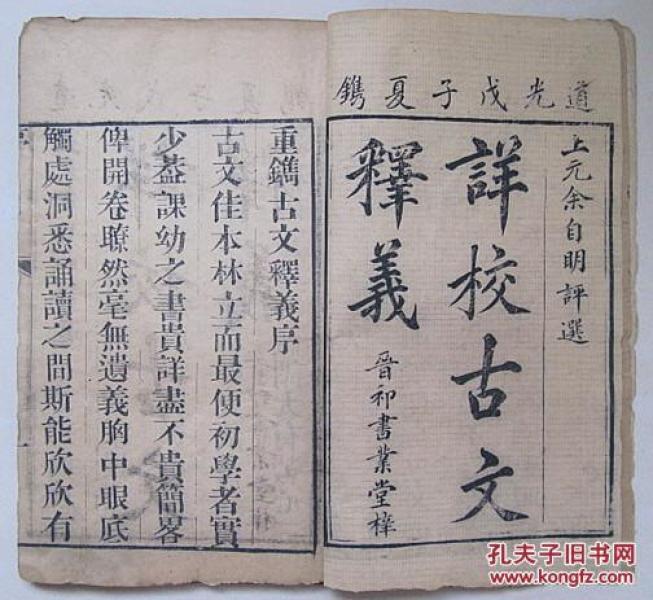 道光戊子夏鐫
上元余自明評選
詳校古文
釋義
晉祁書業堂梓
重鐫古文釋義序
古文佳本林立而最便初學者實
少蓋課幼之書貴詳盡不貴簡畧
俾開卷瞭然毫無遺義胸中眼底
觸處洞悉誦讀之間斯能欣欣有
序
孔夫子旧书网
www.kongfz.com